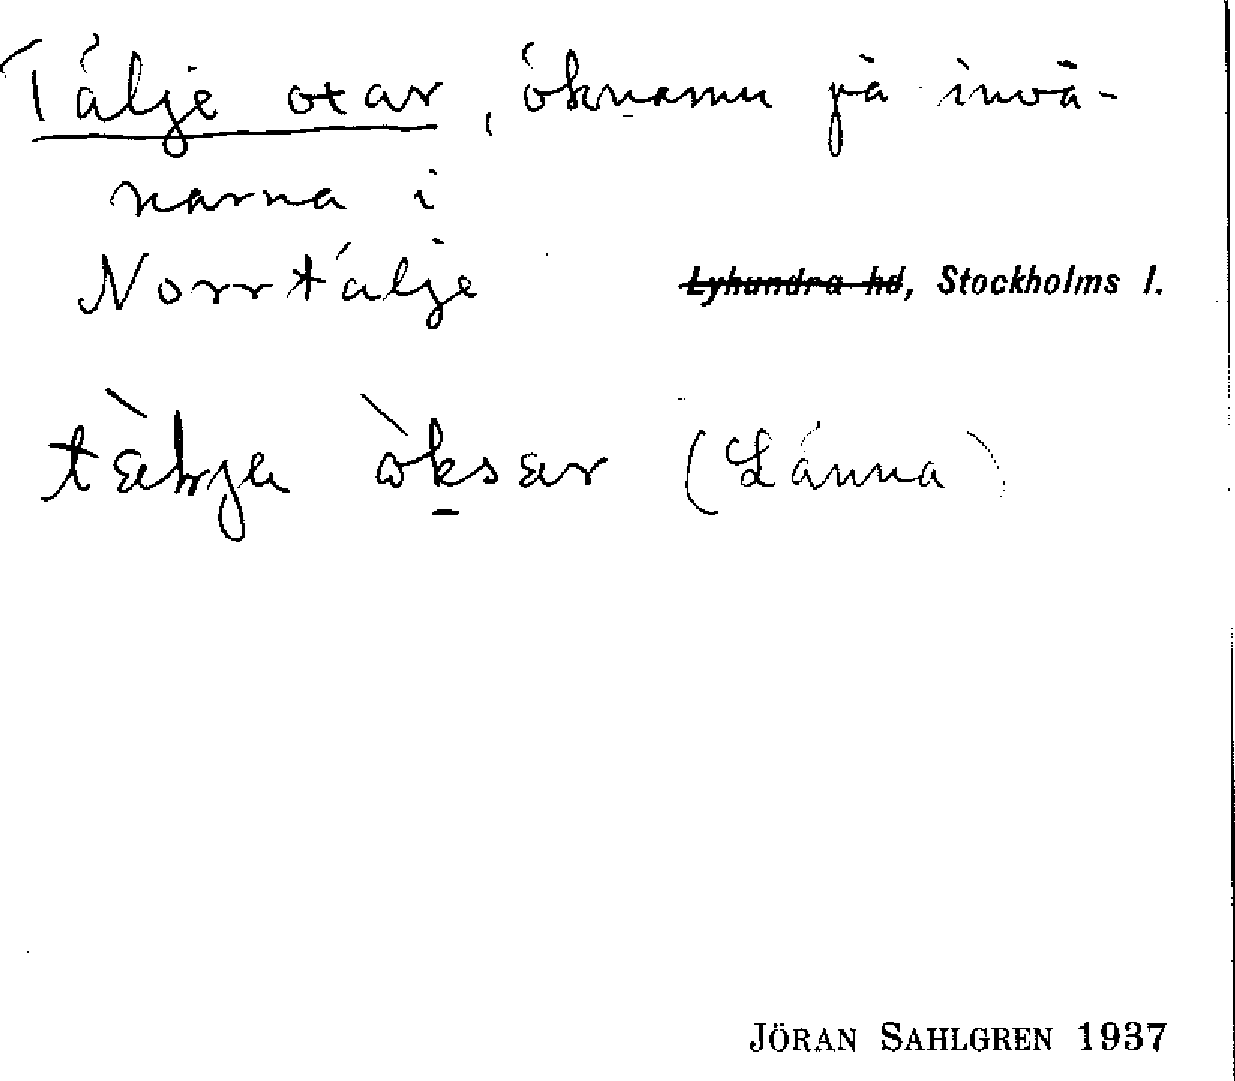 Tälje oxar, öknamn på invå-
narna i
Norrtälje
Lyhundra hd, Stockholms l.
tälja òksar (Länna)
JÖRAN SAHLGREN 1937